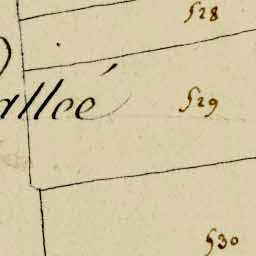 528
alleé
529
530